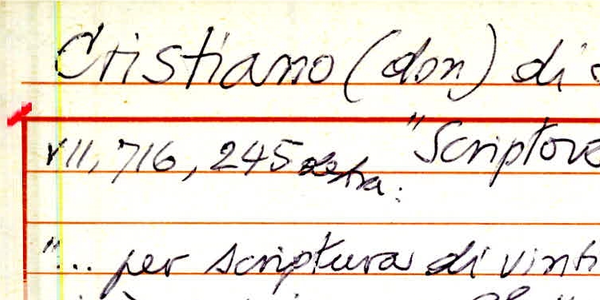 Cristiano (don) di
VII, 716, 245 destra: "Scriptore
"... per scriptura di vinti